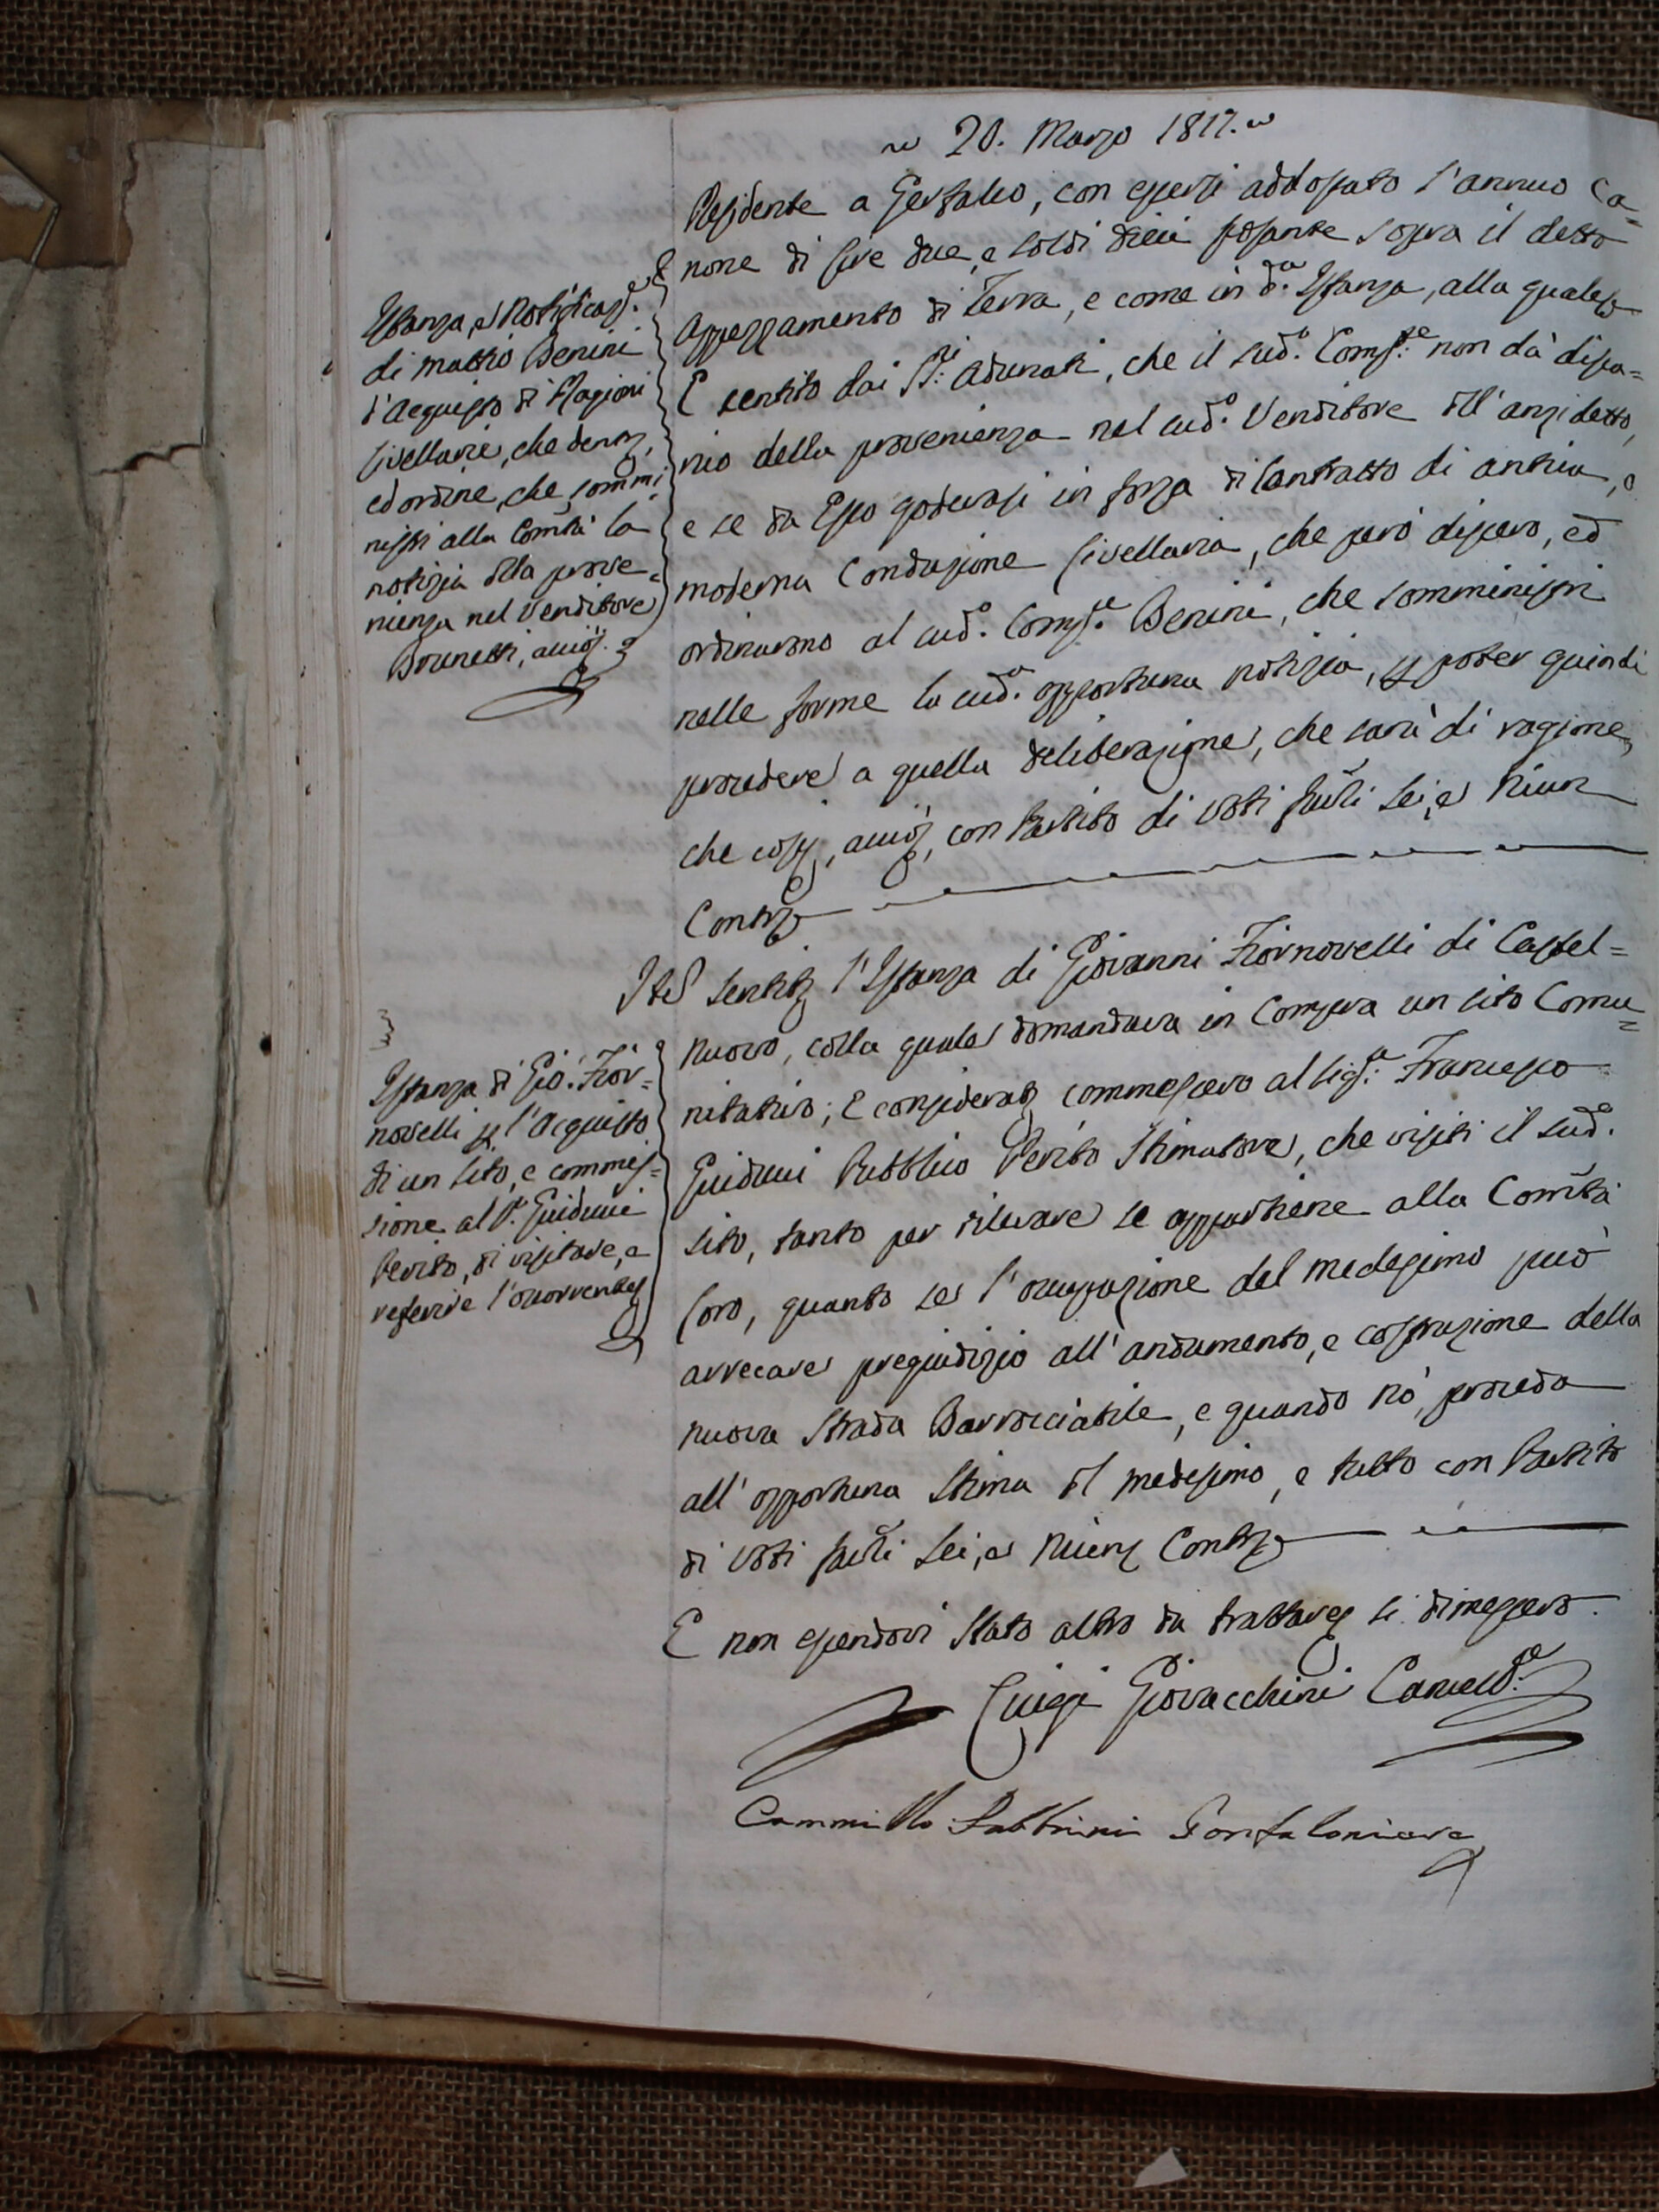 20. Marzo 1817.
Residente a Gerfalco, con essersi addossato l'annuo Ca=
none di Lire due, e soldi dieci posante sopra il detto
Appezzamento di Terra, e come in d.a Istanza, alla quale
E sentito dai SS.ri Adunati, che il sud.o Comp.re non dà disca=
rio della provenienza nel sud.o Venditore dell'anzidetto,
e se da Esso godevasi in forza di Contratto di antica, o
moderna Conduzione Livellaria, che però dissero, ed
ordinarono al sud.o Comp.re Benini, che somministri
nelle forme la sud.a opportuna notizia, p poter quindi
procedere a quella deliberazione, che sarà di ragione,
che così, con Partito di Voti favli Sei, e Niun
Contr.
Istanza, e Notificaz.e
di Mattio Benini
d'Acquisto di Ragioni
Livellarie, che
ed ordine, che sommi
nistri alla Comtà la
notizia della prove=
nienza nel Venditore
Brunetti,
Item sentita l'Istanza di Giovanni Fiornovelli di Castel=
nuovo, colla quale domandava in Compra un sito Comu=
nitativo; E considerato commessero al Sig.re Francesco
Guiducci Pubblico Perito Stimatore, che visiti il sud.o
sito, tanto per rilevare se appartiene alla Comtà
loro, quanto se l'occupazione del medesimo può
arrecare pregiudizio all'andamento, e costruzione della
nuova Strada Barrocciabile, e quando nò, proceda
all'opportuna Stima del medesimo, e tutto con Partito
di Voti favli Sei, e Niuno Contr.
Istanza di Gio. Fior=
novelli p l'Acquisto
di un sito, e commes=
sione al S.r Guiducci
Perito, di visitare, e
referire l'occorrente
E non essendovi stato altro da trattare si dimessero.
Luigi Giovacchini Cancell.e
Cammillo Sabbrini Gonfaloniere